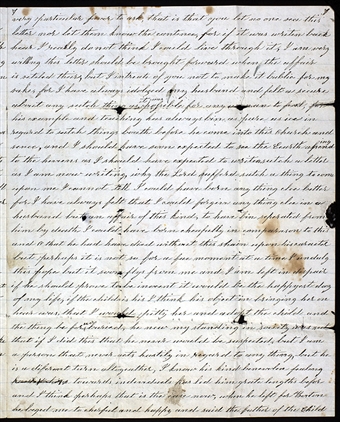 very particular favor to ask that is that you let no one see this
letter nor let them know the contents, for if it was writen back
here I realy do not think I could live through it, I am very
willing this letter should be brought forward when the affair
is settled thing but I intreat of you not to make it public for my
sake, for I have allways idolized my husband and felt as secure
about any such thing as possible for any woman to feel, from
his example and teaching has always been as pure as ice in
regard to such things both before he came into this Church and
since, and I should have soon expected to see the Earth
to the heavens as I should have expected to written such a letter
as I am now writing, why the Lord suffered such a thing to come
upon me I cannot tell I could have born any thing else better
for I have always felt that I would forgive any thing else in a
husband but an affair of this kind, to have been separated from
him by death I would have born chearfully in comparison to this
and O that he had have died without this stain upon his character
but perhaps it is not so for a few moment at a time I indulg
this hope but it soon flys from me and I am left in despair
if he should prove to be inocent it would be the happyest day
of my life, if the child is his I think his object in bringing her on
here was, that I would pitty her and adopt the child and
the thing be
that if I did this that he never would be suspected, but I am
a person that never acts hastily in regard to any thing, but he
is a different turn altogether, I know he had
towards individuals
and I think perhaps that is the case now, when he left for Boston
he beged me to be cheerful and happy and said the father of the child